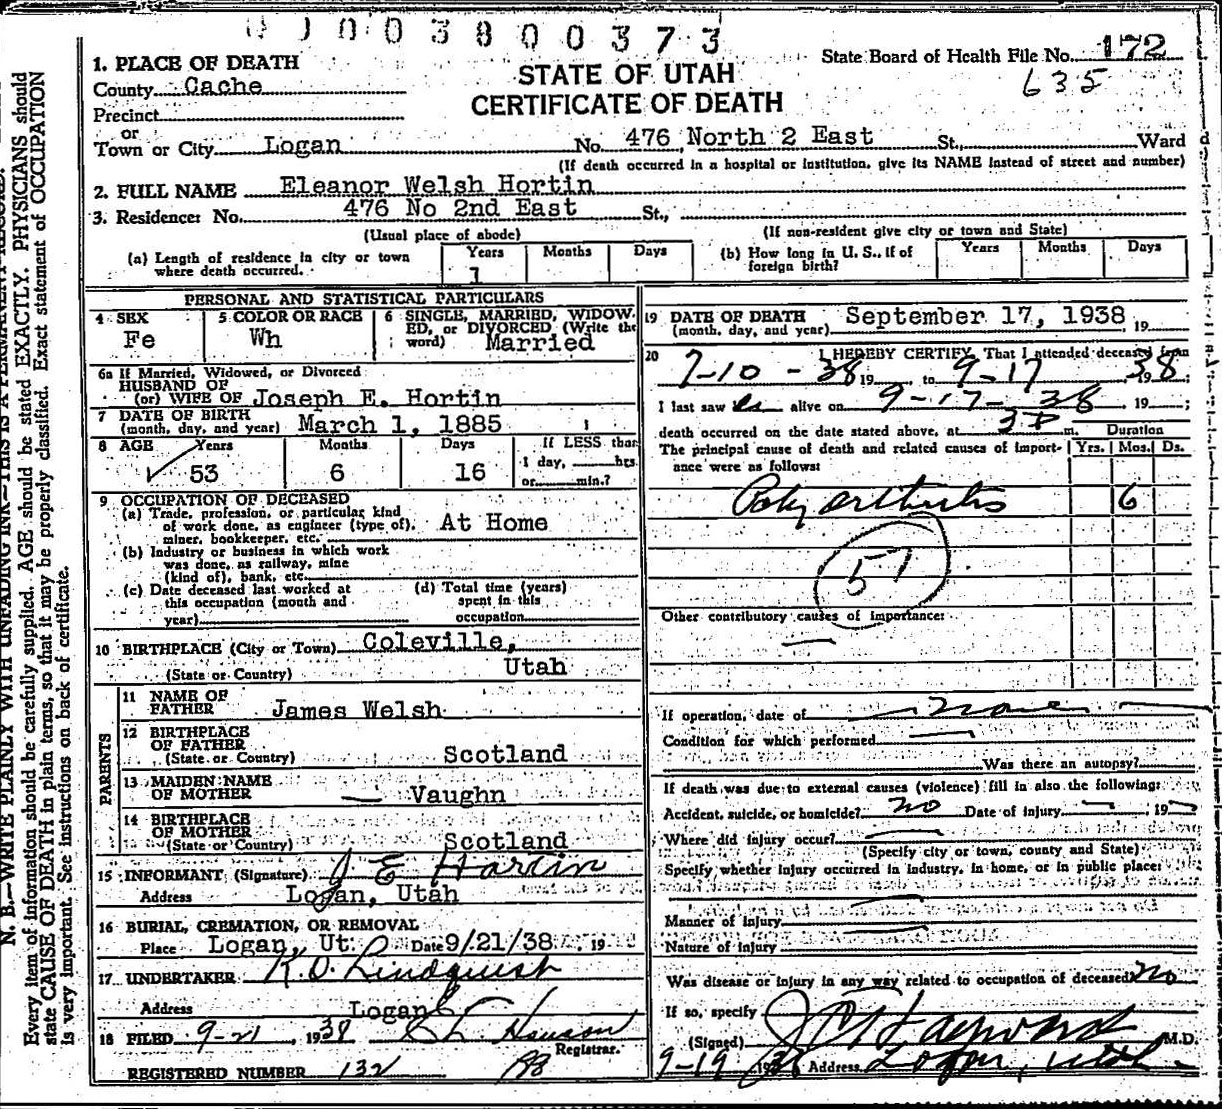 0 0 0 3 8 0 0 3 7 3
State Board of Health File No. 172
635
STATE OF UTAH
CERTIFICATE OF DEATH
1. PLACE OF DEATH
County Cache
Precinct
or
Town or City Logan No. 476 North 2 East St., Ward
(If death occurred in a hospital or institution, give its NAME instead of street and number)
2. FULL NAME Eleanor Welsh Hortin
3. Residence: No. 476 No 2nd East St.,
(Usual place of abode) (If non-resident give city or town and State)
(a) Length of residence in city or town where death occurred. Years 1 Months Days
(b) How long in U. S., if of foreign birth? Years Months Days
PERSONAL AND STATISTICAL PARTICULARS
4 SEX Fe
5 COLOR OR RACE Wh
6 SINGLE, MARRIED, WIDOWED, or DIVORCED (Write the word) Married
6a If Married, Widowed, or Divorced
HUSBAND OF
(or) WIFE OF Joseph E. Hortin
7 DATE OF BIRTH
(month, day, and year) March 1, 1885
8 AGE Years 53 Months 6 Days 16 If LESS than 1 day, hrs. or min.?
9 OCCUPATION OF DECEASED
(a) Trade, profession, or particular kind
of work done, as engineer (type of), At Home
miner, bookkeeper, etc.
(b) Industry or business in which work
was done, as railway, mine
(kind of), bank, etc.
(c) Date deceased last worked at
this occupation (month and
year)
(d) Total time (years)
spent in this
occupation
10 BIRTHPLACE (City or Town) Coleville,
(State or Country) Utah
PARENTS
11 NAME OF
FATHER James Welsh
12 BIRTHPLACE
OF FATHER
(State or Country) Scotland
13 MAIDEN NAME
OF MOTHER — Vaughn
14 BIRTHPLACE
OF MOTHER
(State or Country) Scotland
15 INFORMANT (Signature) J E Hortin
Address Logan, Utah
16 BURIAL, CREMATION, OR REMOVAL
Place Logan, Ut. Date 9/21/38 19
17 UNDERTAKER K.O. Lindquist
Address Logan
18 FILED 9-21, 1938 Hanson
Registrar.
REGISTERED NUMBER 132
19 DATE OF DEATH
(month, day, and year) September 17, 1938 19
20 I HEREBY CERTIFY, That I attended deceased from
7-10-38 19 to 9-17, 1938;
I last saw alive on 9-17-38 19;
death occurred on the date stated above, at 3 P m. Duration
The principal cause of death and related causes of importance were as follows: Yrs. Mos. Ds.
Poly arthritis 6
57
Other contributory causes of importance:
—
If operation, date of — none —
Condition for which performed —
Was there an autopsy?
If death was due to external causes (violence) fill in also the following:
Accident, suicide, or homicide? no Date of injury — 19
Where did injury occur? —
(Specify city or town, county and State)
Specify whether injury occurred in industry, in home, or in public place:
Manner of injury —
Nature of injury
Was disease or injury in any way related to occupation of deceased? no
If so, specify
(Signed) J C Hayward M.D.
9-19 1938 Address Logan, Utah
N. B.—WRITE PLAINLY WITH UNFADING INK—THIS IS A PERMANENT RECORD.
Every item of information should be carefully supplied. AGE should be stated EXACTLY. PHYSICIANS should
state CAUSE OF DEATH in plain terms, so that it may be properly classified. Exact statement of OCCUPATION
is very important. See instructions on back of certificate.